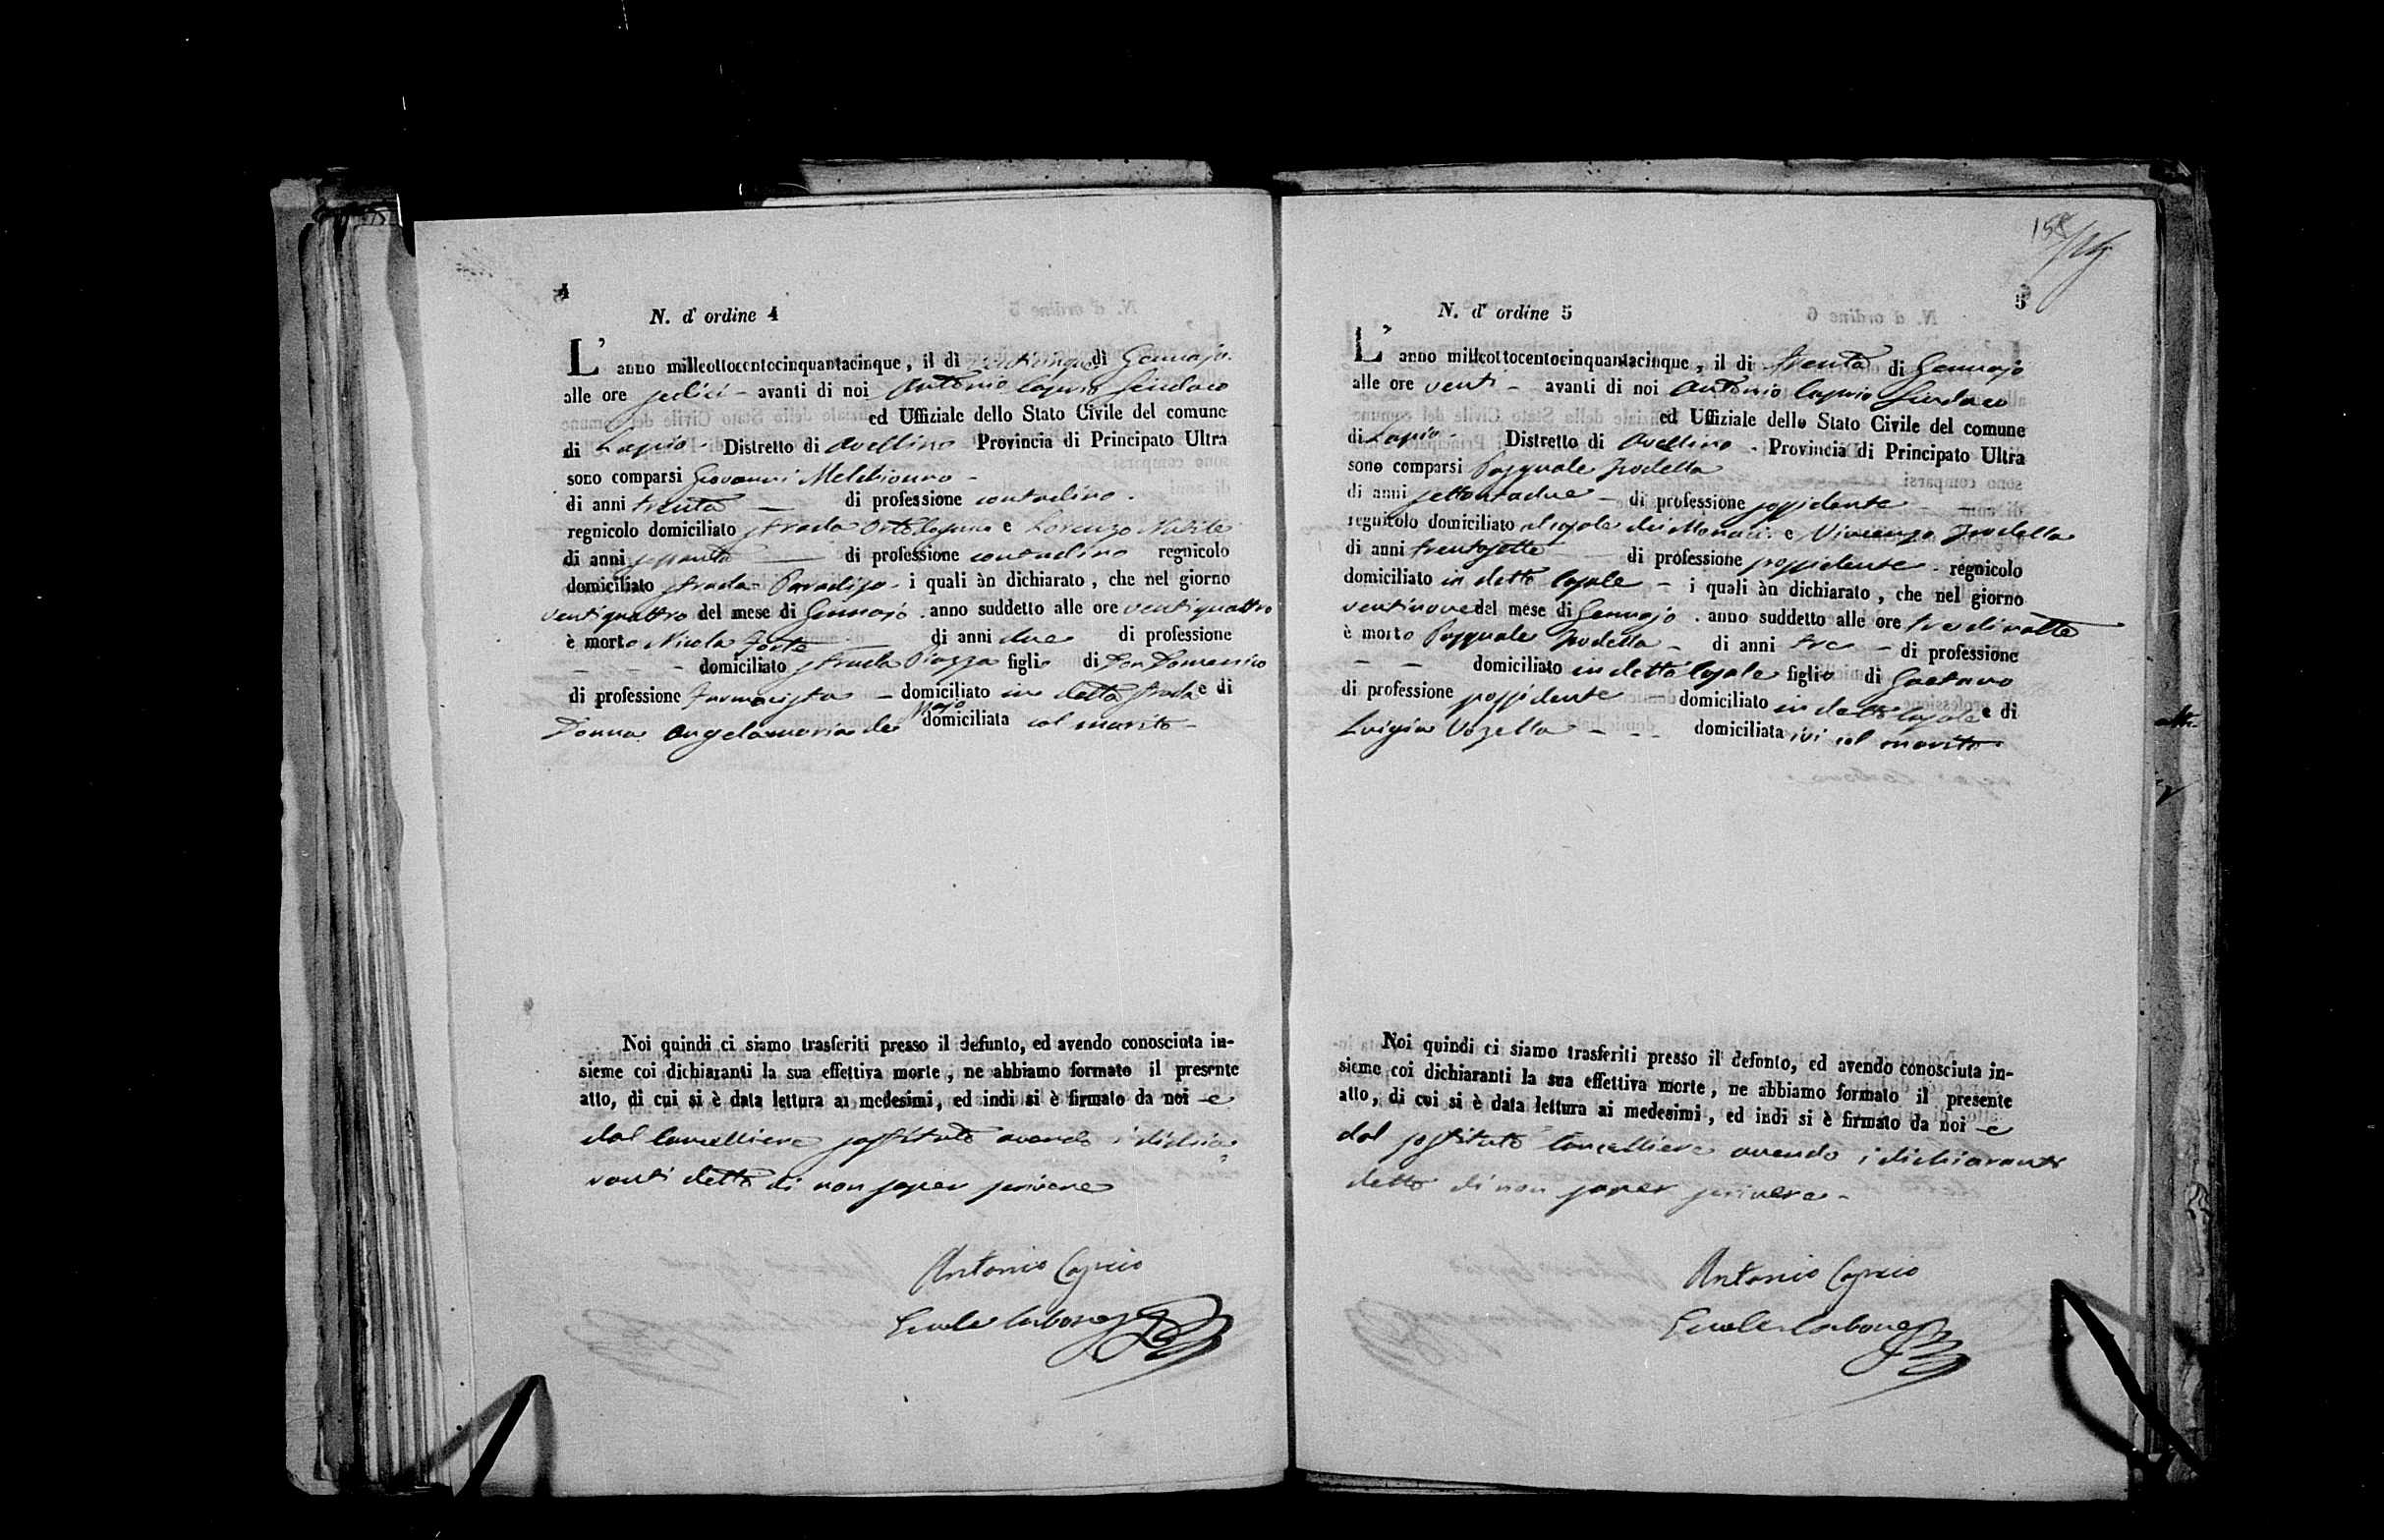 4
N. d' ordine 4
L' anno milleottocentocinquantacinque, il di venticinque di Gennajo
alle ore sedici - avanti di noi Antonio Caprio Sindaco
ed Uffiziale dello Stato Civile del comune
di Lapio - Distretto di Avellino Provincia di Principato Ultra
sono comparsi Giovanni Melchionno -
di anni trenta — di professione contadino -
regnicolo domiciliato strada e Lorenzo
di anni sessanta — di professione contadino regnicolo
domiciliato strada Paradiso - i quali àn dichiarato, che nel giorno
ventiquattro del mese di Gennajo . anno suddetto alle ore ventiquattro
è morto Nicola Forte di anni due di professione
- - - domiciliato strada Piazza figlio di Don Domenico
di professione Farmacista - domiciliato in detta strada e di
Donna Angelamaria de Majo domiciliata col marito -
Noi quindi ci siamo trasferiti presso il defunto, ed avendo conosciuta in-
sieme coi dichiaranti la sua effettiva morte, ne abbiamo formato il presente
atto, di cui si è data lettura ai medesimi, ed indi si è firmato da noi e
dal Cancelliere sostituto avendo i dichia-
ranti detto di non saper scrivere
Antonio Caprio
Ercole Carbone
158
5
N. d' ordine 5
L' anno milleottocentocinquantacinque, il di trenta di Gennajo
alle ore venti - avanti di noi Antonio Caprio Sindaco
ed Uffiziale dello Stato Civile del comune
di Lapio - Distretto di Avellino - Provincia di Principato Ultra
sono comparsi Pasquale Trodella
di anni settantadue - di professione possidente -
regnicolo domiciliato al casale dei Monaci e Vincenzo Trodella
di anni trentasette - di professione possidente - regnicolo
domiciliato in detto casale - i quali àn dichiarato, che nel giorno
ventinove del mese di Gennajo . anno suddetto alle ore tre di notte
è morto Pasquale Trodella - di anni tre - di professione
- - domiciliato in detto casale figlio di Gaetano
di professione possidente - domiciliato in detto casale e di
Luigia Vozella - - - domiciliata ivi col marito
Noi quindi ci siamo trasferiti presso il defonto, ed avendo conosciuta in-
sieme coi dichiaranti la sua effettiva morte, ne abbiamo formato il presente
atto, di cui si è data lettura ai medesimi, ed indi si è firmato da noi e
dal sostituto Cancelliere avendo i dichiaranti
detto di non saper scrivere -
Antonio Caprio
Ercole Carbone